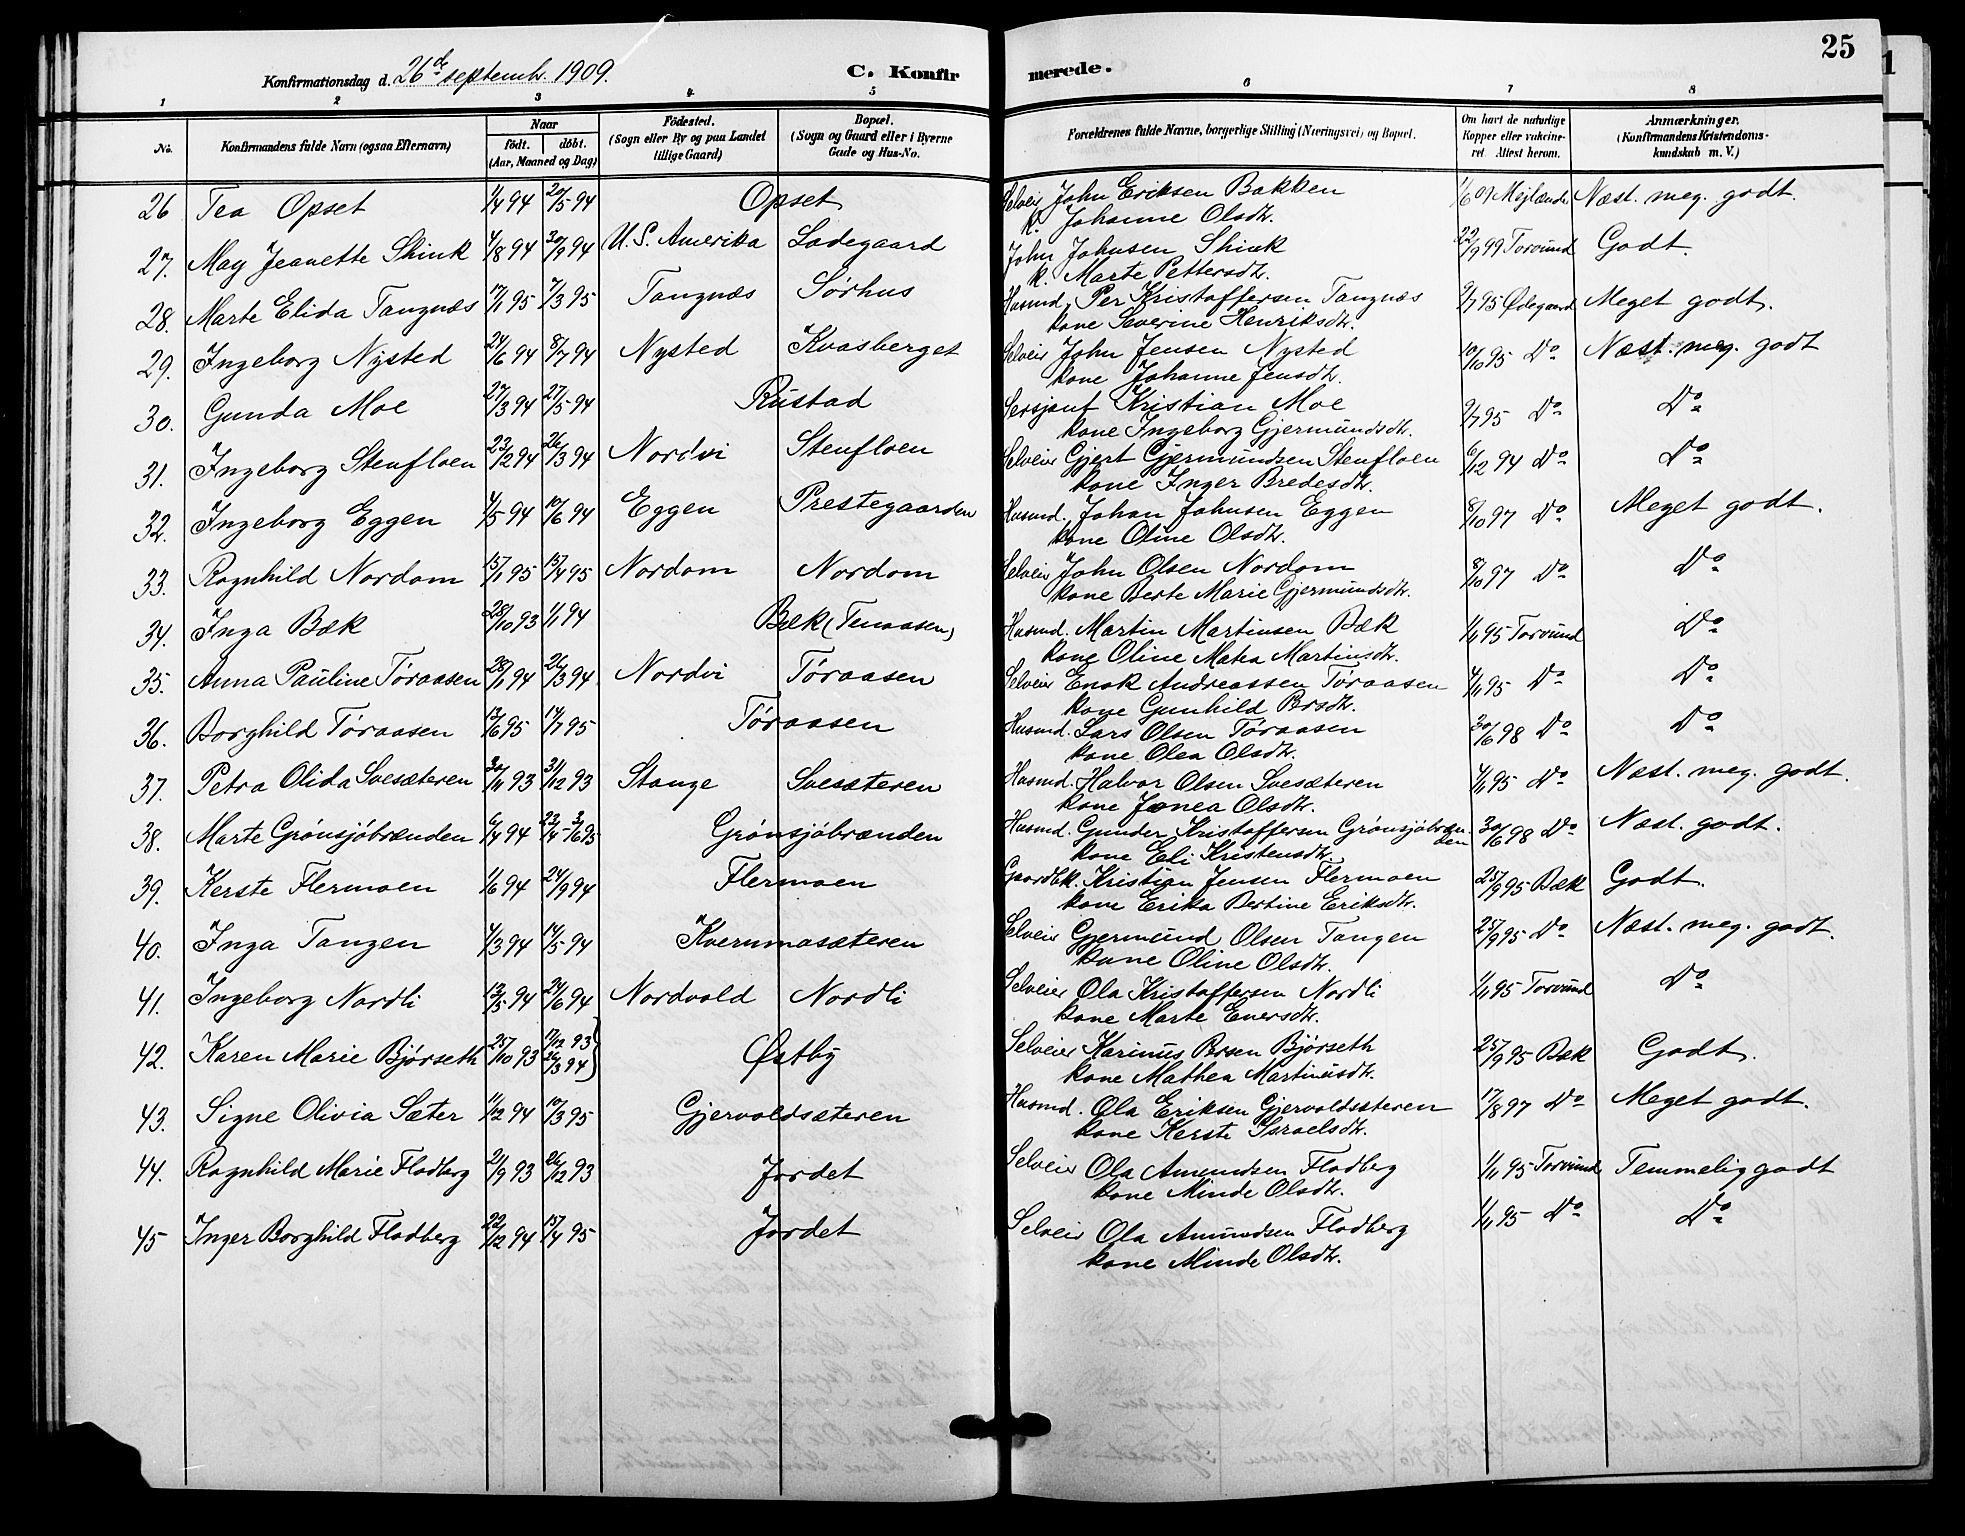 Konfirmationsdag d. 26de septembr. 1909. C. Konfirmerede. 25
1 2 3 4 5 6 7 8
No. Konfirmandens fulde Navn (ogsaa Efternavn) Naar født. døbt. (Aar, Maaned og Dag) Fødested. (Sogn eller By og paa Landet tillige Gaard) Bopæl. (Sogn og Gaard eller i Byerne Gade og Hus-No. Forældrenes fulde Navne, borgerlige Stilling (Næringsvei) og Bopæl. Om havt de naturlige Kopper eller vaccineret. Attest herom. Anmærkninger. (Konfirmandens Kristendomskundskab m. V.)
26 Tea Opset 1/4 94 20/5 94 Opset Selveier John Eriksen Bakken 1/6 09 Næst. meg. godt.
k. Johanne Olsdtr.
27. May Jeanette Skink 4/8 94 30/9 94 U. S. Amerika Ladegaard John Johnsen Skink 22/9 99 Torvund Godt.
k. Marte Pettersdtr.
28. Marte Elida Tangnæs 17/1 95 7/3 95 Tangnæs Sørhus Husmd. Per Kristoffersen Tangnæs 9/7 95 Ødegaard Meget godt.
kone Severine Henriksdtr.
29. Ingeborg Nysted 24/6 94 8/7 94 Nysted Kvasberget Selveier John Jensen Nysted 10/10 95 Do Næst. meg. godt
kone Johanne Jensdtr.
30. Gunda Moe 27/3 94 27/5 94 Rustad Sersjant Kristian Moe 9/7 95 Do Do
kone Ingeborg Gjermundsdtr.
31. Ingeborg Stenfloen 23/2 94 26/3 94 Nordvi Stenfloen Selveier Gjert Gjermundsen Stenfloen 6/12 94 Do Do
kone Inger Bredesdtr.
32. Ingeborg Eggen 4/5 94 10/6 94 Eggen Prestegaarden Husmd. Johan Johnsen Eggen 8/10 97 Do Meget godt.
kone Oline Olsdtr.
33. Ragnhild Nordom 15/1 95 15/4 95 Nordom Nordom Selveier John Olsen Nordom 8/10 97 Do Do
kone Berte Marie Gjermundsdtr.
34. Inga Bæk 28/10 93 1/1 94 Bæk (Tenaasen) Husmd. Martin Martinsen Bæk 1/11 95 Torvund Do
kone Oline Matea Martinsdtr.
35. Anna Pauline Tøraasen 28/1 94 26/3 94 Nordvi Tøraasen Selveier Enok Andreassen Tøraasen 4/11 95 Do Do
kone Gunhild Prsdtr.
36. Borghild Tøraasen 12/6 95 14/7 95 Tøraasen Husmd. Lars Olsen Tøraasen 30/6 98 Do Do
kone Olea Olsdtr.
37. Petra Olida Svesæteren 30/11 93 31/12 93 Stange Svesæteren Husmd. Halvor Olsen Svesæteren 4/11 95 Do Næst. meg. godt.
kone Jonea Olsdtr.
38. Marte Grønsjøbrænden 6/4 94 23/4 - 3/6 95 Grønsjøbrænden Husmd. Gunder Kristoffersen Grønsjøbrænden 30/6 98 Do Næst. godt.
kone Eli Kristensdtr.
39. Kerste Flermoen 1/6 94 24/9 94 Flermoen Gaardbk. Kristian Jensen Flermoen 25/9 95 Bæk Godt.
kone Erika Bertine Eriksdtr.
40. Inga Tangen 4/3 94 14/5 94 Kvernmosæteren Selveier Gjermund Olsen Tangen 25/9 95 Do Næst. meg. godt.
kone Oline Olsdtr.
41. Ingeborg Nordli 13/5 94 24/6 94 Nordvold Nordli Selveier Ola Kristoffersen Nordli 1/11 95 Torvund Do
kone Marte Enersdtr.
42. Karen Marie Bjørseth 25/10 93 17/12 93 26/3 94 Østby Selveier Karinus Prsen Bjørseth 25/9 95 Bæk Godt.
kone Mathea Martinusdtr.
43. Signe Olivia Sæter 1/12 94 10/3 95 Gjervoldsæteren Husmd. Ola Eriksen Gjervoldsæteren 17/8 97 Do Meget godt.
kone Kerste Israelsdtr.
44. Ragnhild Marie Flodberg 21/9 93 26/12 93 Jordet Selveier Ola Amundsen Flodberg 1/11 95 Torvund Temmelig godt
kone Minde Olsdtr.
45 Inger Borghild Flodberg 22/12 94 15/4 95 Jordet Selveier Ola Amundsen Flodberg 1/11 95 Do Do
kone Minde Olsdtr.